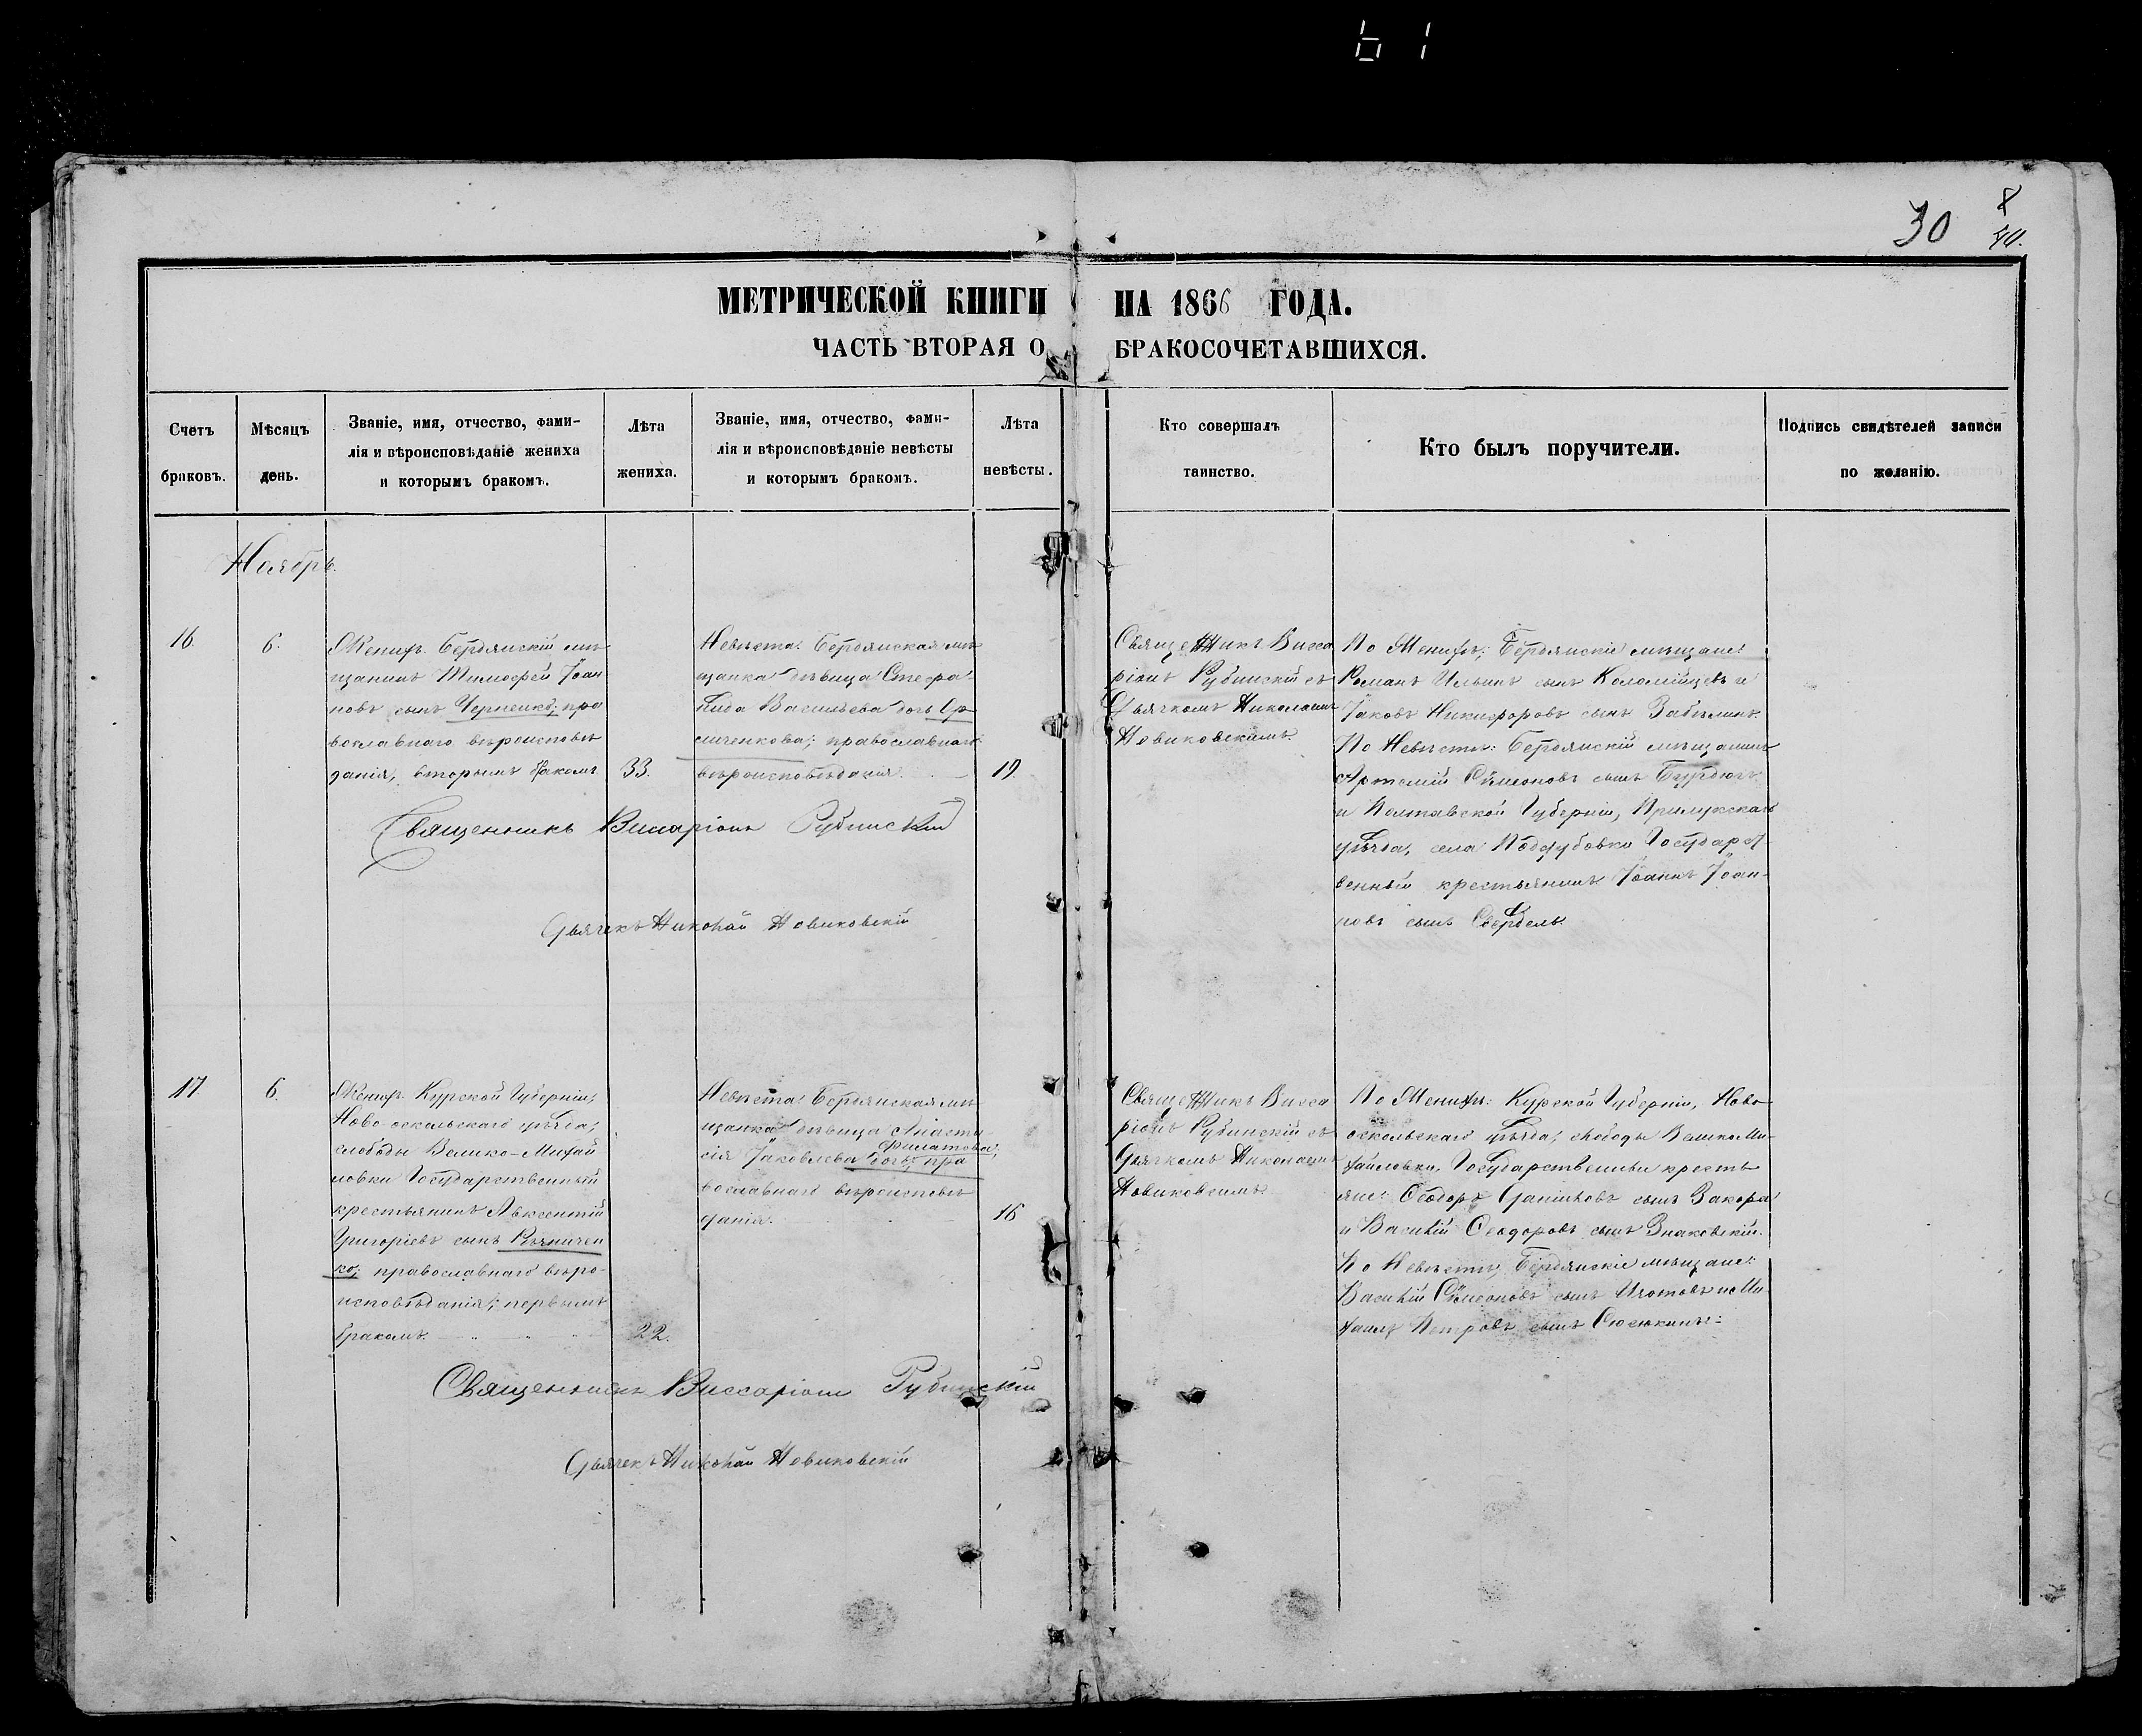 61
30
8
40.
МЕТРИЧЕСКОЙ КНИГИ НА 1866 ГОДА.
ЧАСТЬ ВТОРАЯ О БРАКОСОЧЕТАВШИХСЯ.
Счетъ
браковъ.
Мѣсяцъ
день.
Званіе, имя, отчество, фами-
лія и вѣроисповѣданіе жениха
и которымъ бракомъ.
Лѣта
жениха.
Званіе, имя, отчество, фами-
лія и вѣроисповѣданіе невѣсты
и которымъ бракомъ.
Лѣта
невѣсты.
Кто совершалъ
таинство.
Кто былъ поручители.
Подпись свидѣтелей записи
по желанію.
Ноябрь.
16.
6.
Женихъ. Бердянскій мѣ
щанинъ Тимофей Іоан
новъ сынъ Черненко; пра
вославнаго вѣроисповѣ
данія, вторымъ бракомъ
33.
Невѣста: Бердянская мѣ
щанка дѣвица Стефа
нида Васильева дочь
православнаго
вѣроисповѣданія.
19.
Священникъ Висса
ріонъ Рубинскій съ
Дьячкомъ Николаемъ
Новиковскимъ.
По Женихѣ; Бердянскіе мѣщане:
Романъ Ильинъ сынъ Коломійцевъ и
Іаковъ Никифоровъ сынъ Забѣлинъ.
По Невѣстѣ: Бердянскій мѣщанинъ
Артемій Сѵмеоновъ сынъ Бурдюгъ
и Полтавской Губерніи, Прилукскаго
уѣзда, села Поддубовки Государст
венный крестьянинъ Іоаннъ Іоан-
новъ сынъ Свердель.
Священникъ Виссаріонъ Рубинскій
Дьячекъ Николай Новиковскій
17.
6.
Женихъ. Курской Губерніи,
Ново-оскольскаго уѣзда,
слободы Велико-Михай
ловки Государственный
крестьянинъ Авксентій
Григорієвъ сынъ Рѣзничен
ко; православнаго вѣро-
исповѣданія; первымъ
бракомъ.
22.
Невѣста: Бердянская мѣ
щанка дѣвица Анаста
сія Іаковлева дочь Филатова; пра
вославнаго вѣроисповѣ
данія.
16
Священникъ Висса
ріонъ Рубинскій съ
Дьячкомъ Николаемъ
Новиковскимъ
По Женихѣ: Курской Губерніи, Ново-
оскольскаго уѣзда, слободы Велико Ми-
хайловки, Государственныи кресть
яне: Ѳеодоръ Даніиловъ сынъ Закора
и Василій Ѳеодоровъ сынъ Знаковскій.
По Невѣстѣ, Бердянскіе мѣщане:
Василій Сѵмеоновъ сынъ Изотовъ и Ми-
хаилъ Петровъ сынъ Сюсюкинъ:
Священникъ Виссаріонъ Рубинскій
Дьячекъ Николай Новиковскій